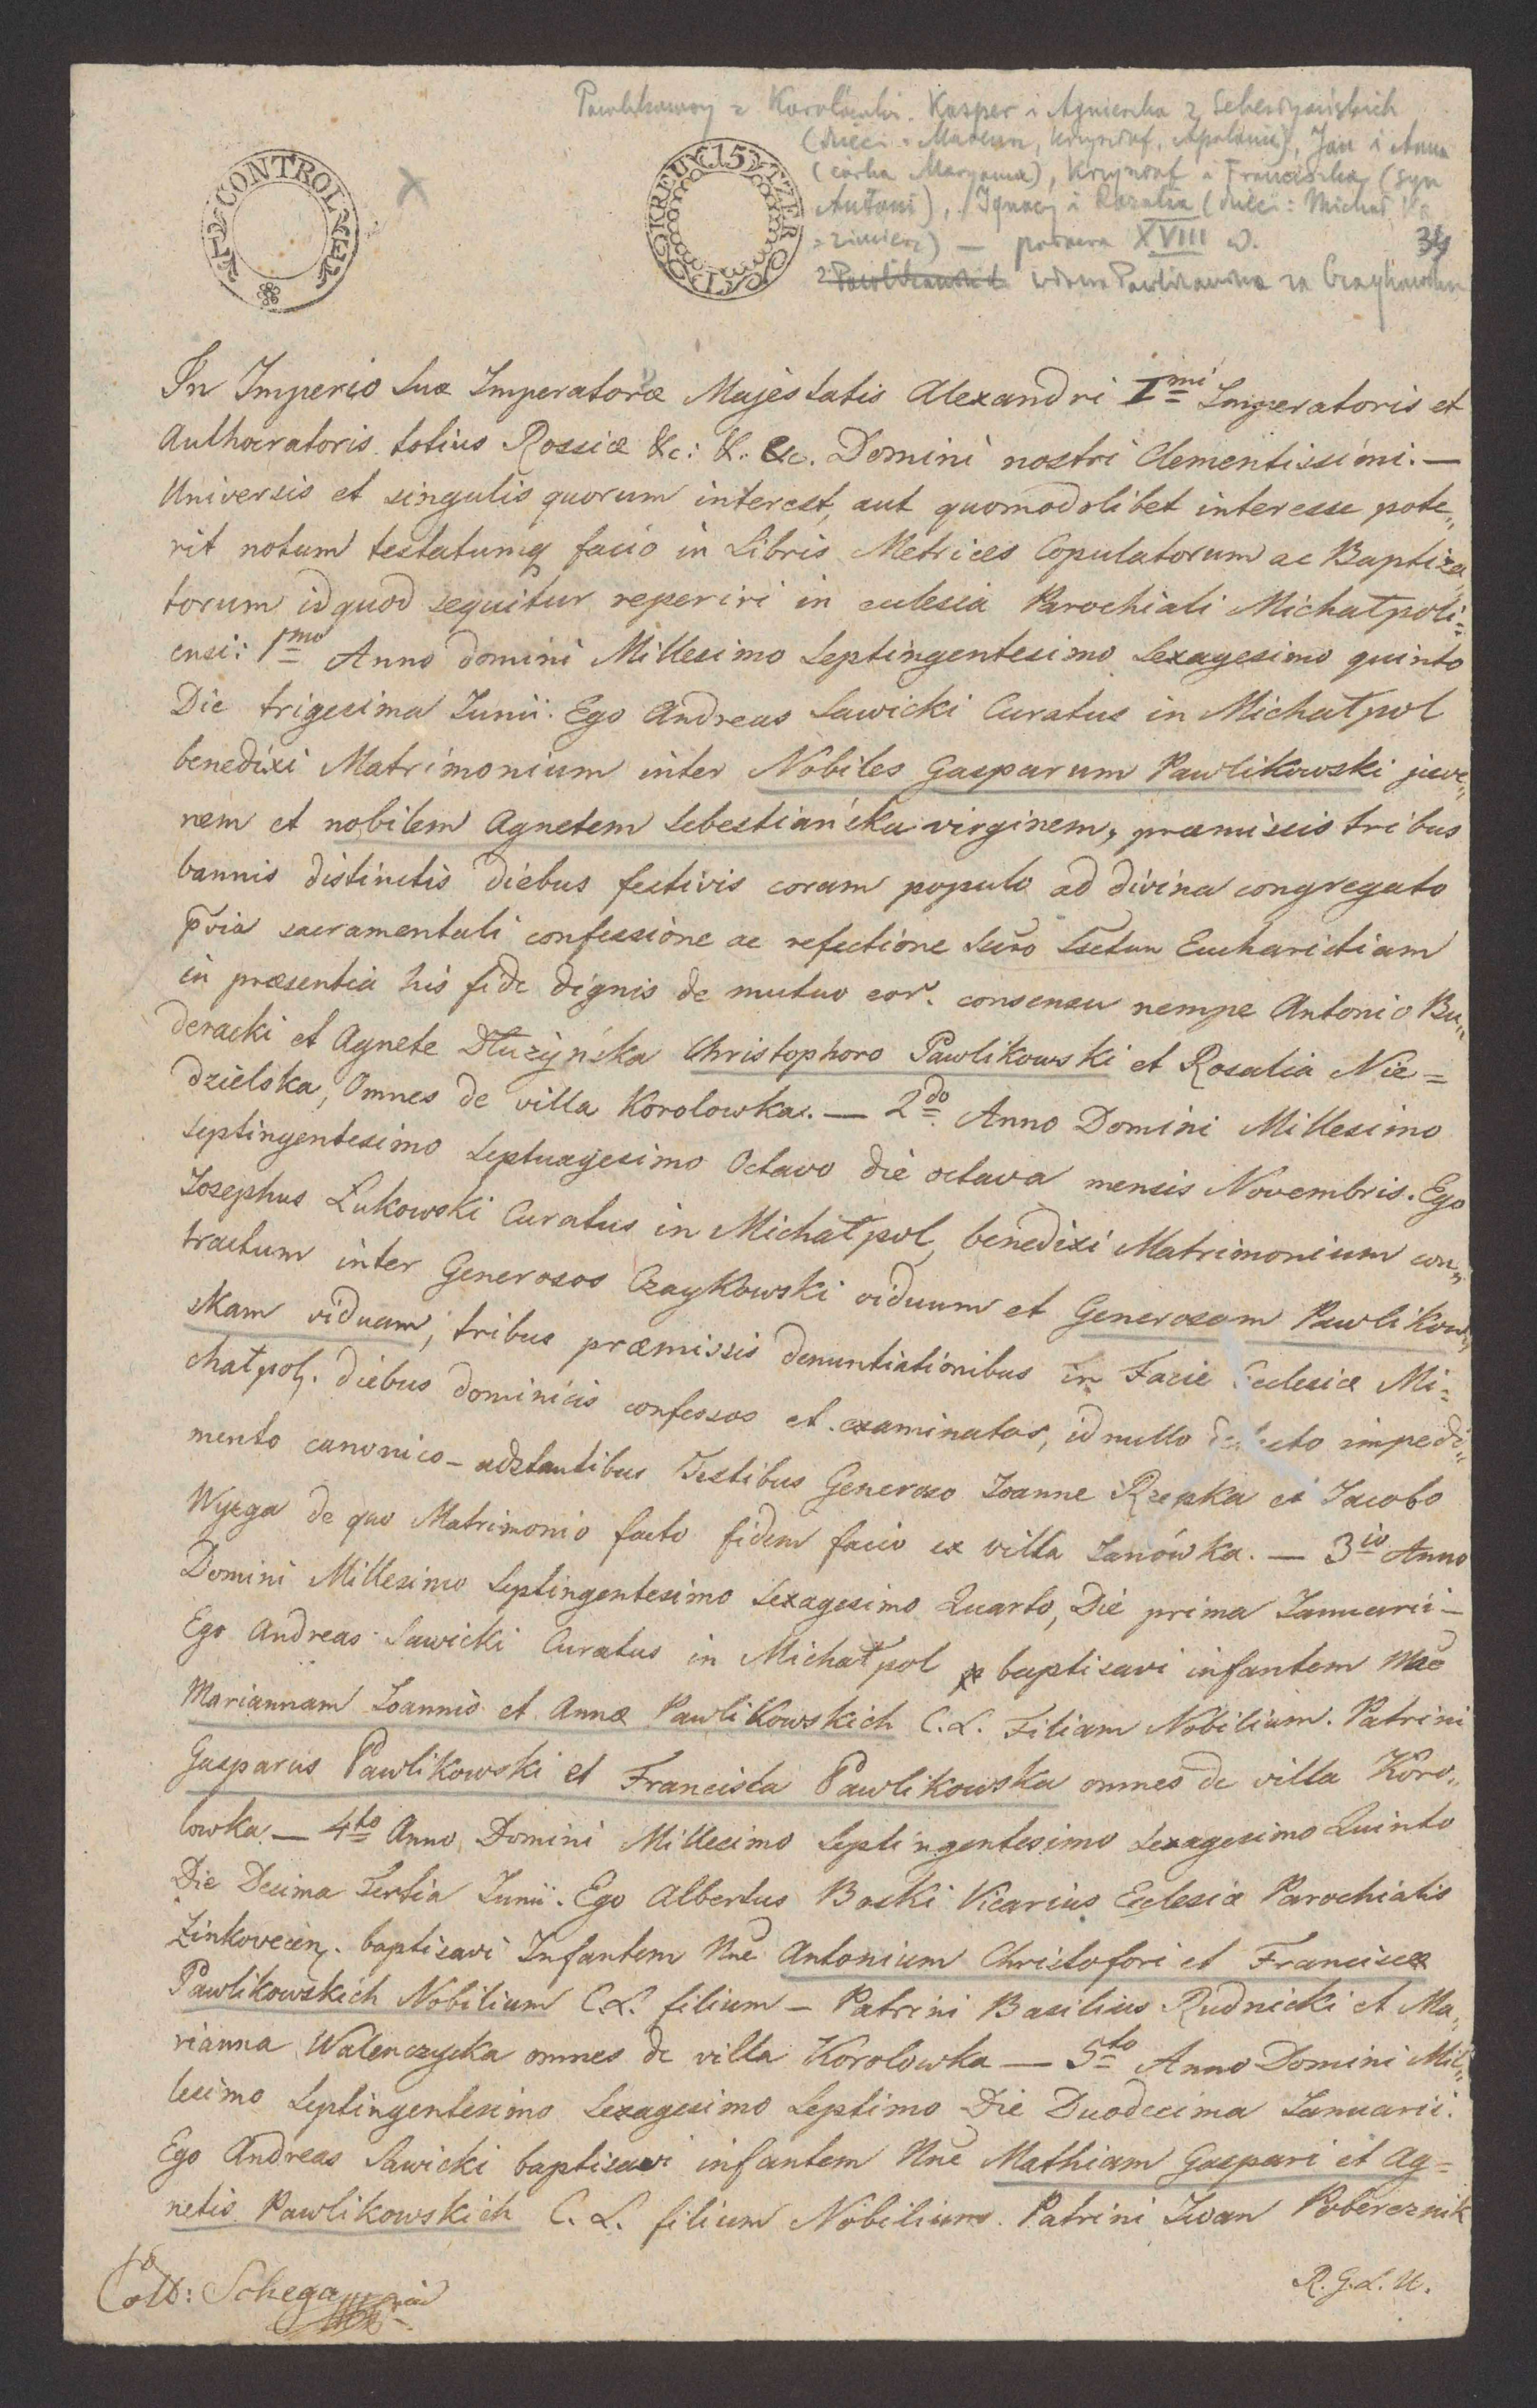 Pawlikowscy z Korolówki. Kasper i Agnieszka z Sebestyańskich
(dzieci: Krzysztof, Jan i Anna
(córka Maryanna), Krzysztof i Franciszka (syn
Antoni), Ignacy i Rozalia (dzieci: Michał
XVIII w. 34
wdowa Pawlikowska za Czaykowskim
CONTROL
15 KREUTZER
In Imperio Suæ Imperatoræ Majestatis Alexandri I^mi Imperatoris et
Authocratoris totius Rossiæ &c: &. &c. Domini nostri Clementissimi. —
Universis et singulis quorum interest, aut quomodolibet interesse pote„
rit notum testatumq facio in Libris Metrices Copulatorum ac Baptiza„
torum id quod sequitur reperiri in eclesia Parochiali Michałpoli=
ensi: 1^mo Anno domini Millesimo Septingentesimo Sexagesimo quinto
Die trigesima Junii. Ego Andreas Sawicki Curatus in Michałpol
benedixi Matrimonium inter Nobiles Gasparum Pawlikowski juve„
nem et nobilem Agnetem Sebestiańska virginem, præmissis tribus
bannis distinctis diebus festivis coram populo ad divina congregato
p̄via sacramentali confessione ac refectione Eucharistiam
in præsentia his fide dignis de mutuo eor. consensu nempe Antonio Bu„
deracki et Agnete Dłużyńska Christophoro Pawlikowski et Rosalia Nie=
dzielska, Omnes de villa Korolowka. — 2^do Anno Domini Millesimo
Septingentesimo Septuagesimo Octavo die octava mensis Novembris. Ego
Josephus Łukowski Curatus in Michałpol, benedixi Matrimonium con„
tractum inter Generosos Czaykowski viduum et Generosam Pawlikow„
skam viduam, tribus præmissis denuntiationibus in Facie Eclesiæ Mi=
chałpol. diebus dominicis confessos et examinatos, id nullo detecto impedi„
mento canonico – adstantibus Testibus Generoso Joanne Rzepka et Jacobo
Wyzga de quo Matrimonio facto fidem facio ex villa Janówka. — 3^io Anno
Domini Millesimo Septingentesimo Sexagesimo Quarto, Die prima Januarii –
Ego Andreas Sawicki Curatus in Michałpol baptisavi infantem
Mariannam Joannis et Annæ Pawlikowskich C. L. Filiam Nobilium. Patrini
Gasparus Pawlikowski et Francisca Pawlikowska omnes de villa Koro„
lowka. — 4^to Anno Domini Millesimo Septingentesimo Sexagesimo Quinto
Die Decima Tertia Junii. Ego Albertus Boski Vicarius Eclesiæ Parochialis
Zinkovecen. baptisavi Infantem Nne Antonium Christofori et Franciscæ
Pawlikowskich Nobilium C. L. filium – Patrini Basilius Rudnicki et Ma„
rianna Walenczycka omnes de villa Korolowka — 5^to Anno Domini Mil„
lesimo Septingentesimo Sexagesimo Septimo Die Duodecima Januarii.
Ego Andreas Sawicki baptisavi infantem Nne Mathiam Gaspari et Ag=
netis Pawlikowskich C. L. filium Nobilium. Patrini Iwan Pobereznik
Coll: R. G. L. U.